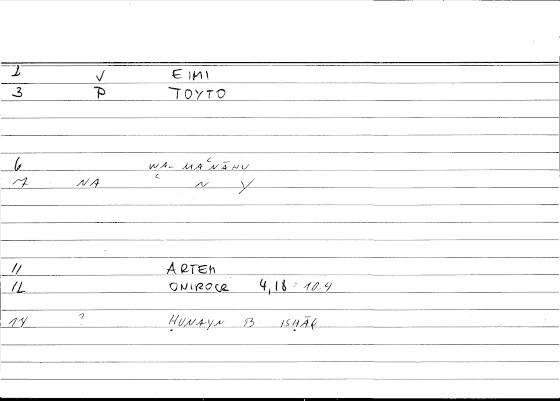 1 V EIMI
3 P TOYTO
6 WA-MAʿNĀHU
7 NA ʿ N Y
11 ARTEM
12 ONIROCR 4,18 = 10.4
14 ? ḤUNAYN B ISḤĀQ